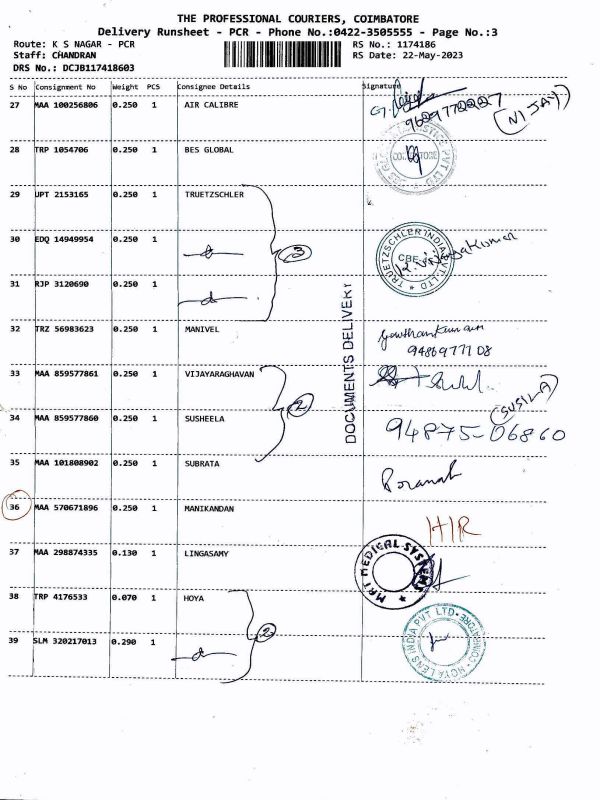 THE PROFESSIONAL COURIERS, COIMBATORE
Delivery Runsheet - PCR - Phone No.:0422-3505555 - Page No.:3
Route: K S NAGAR - PCR RS No.: 1174186
Staff: CHANDRAN RS Date: 22-May-2023
DRS No.: DCJB117418603
S No Consignment No Weight PCS Consignee Details Signature
27 MAA 100256806 0.250 1 AIR CALIBRE
(NIJAY)
28 TRP 1054706 0.250 1 BES GLOBAL
29 JPT 2153165 0.250 1 TRUETZSCHLER
30 EDQ 14949954 0.250 1 3 TRUETZSCHLER INDIA PVT-LTD CBE K. Vijayakumar
31 RJP 3120690 0.250 1
DOCUMENTS DELIVERY
32 TRZ 56983623 0.250 1 MANIVEL Gowthamkumar
9486977108
33 MAA 859577861 0.250 1 VIJAYARAGHAVAN
2 (SUSILA)
34 MAA 859577860 0.250 1 SUSHEELA 94875-06860
35 MAA 101808902 0.250 1 SUBRATA
36 MAA 570671896 0.250 1 MANIKANDAN
HIR
37 MAA 298874335 0.130 1 LINGASAMY MRT MEDICAL SYSTEMS
38 TRP 4176533 0.070 1 HOYA
2
39 SLM 320217013 0.290 1 HOYA LENS INDIA PVT LTD COIMBATORE